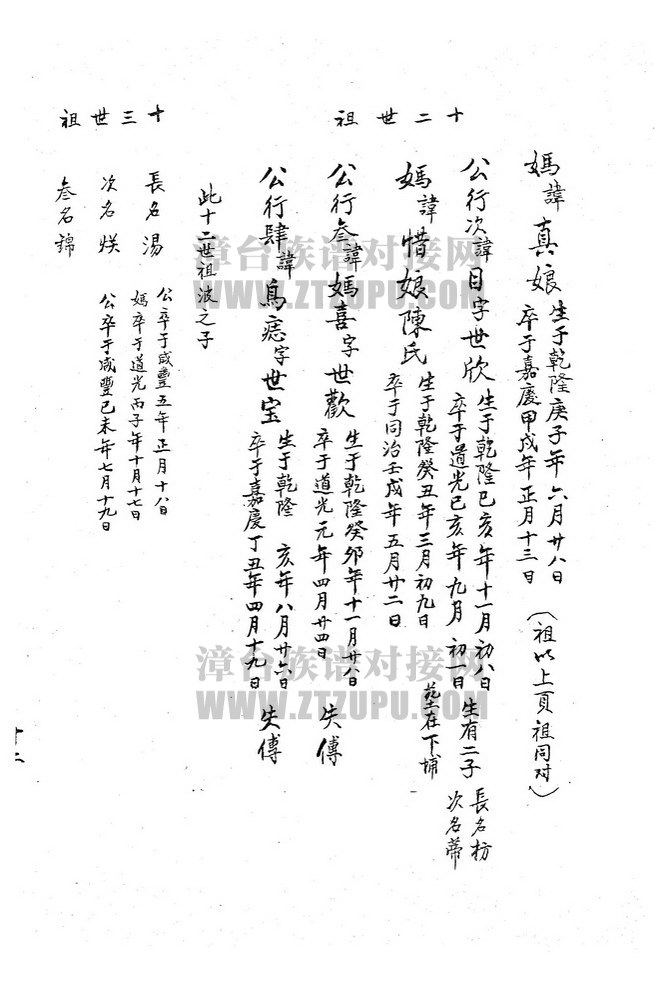 媽諱真娘 生于乾隆庚子年六月廿八日
卒于嘉慶甲戌年正月十三日 (祖以上頁祖同对)
十二世祖
公行次諱目字世欣 生于乾隆己亥年十一月初八日 生有二子 長名枋
卒于道光己亥年九月初一日 次名蒂
媽諱惜娘陳氏 生于乾隆癸丑年三月初九日 在下埔
卒于同治壬戌年五月廿二日
公行叁諱媽喜字世歡 生于乾隆癸卯年十一月廿八日 失傳
卒于道光元年四月廿四日
公行肆諱鳥痣字世宝 生于乾隆 亥年八月廿六日 失傳
卒于嘉慶丁丑年四月十九日
此十二世祖波之子
十三世祖
長名湯 公卒于咸豐五年正月十八日
媽卒于道光丙子年十月十七日
次名烘 公卒于咸豐己未年七月十九日
叁名錦
十二
漳台族谱对接网
WWW.ZTZUPU.COM
漳台族谱对接网
WWW.ZTZUPU.COM